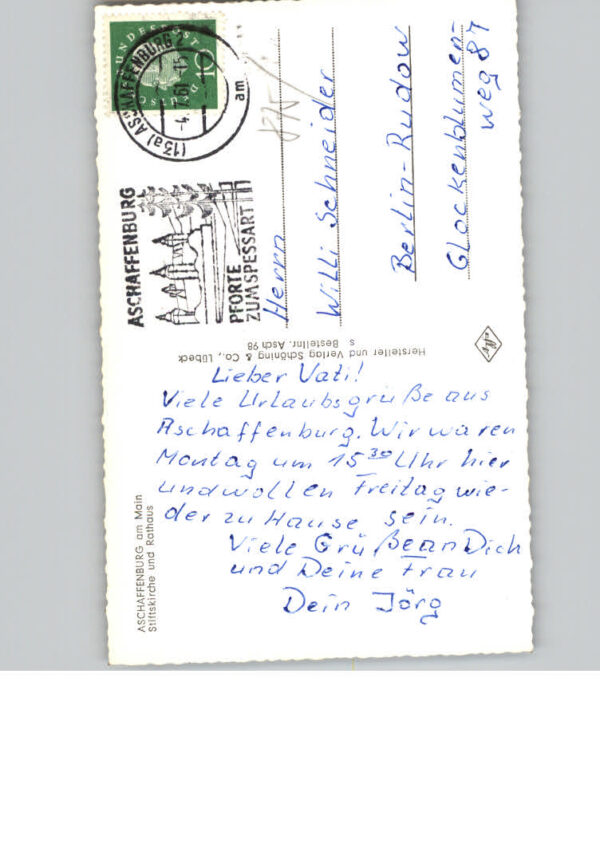 Lieber Vati!
Viele Urlaubsgrüße aus
Aschaffenburg. Wir waren
Montag um 15³⁰ Uhr hier
und wollen Freitag wie-
der zu Hause sein.
Viele Grüße an Dich
und Deine Frau
Dein Jörg
ASCHAFFENBURG am Main
Stiftskirche und Rathaus
Hersteller und Verlag Schöning & Co., Lübeck
s Bestellnr. Asch 98
Herrn
Willi Schneider
Berlin-Rudow
Glockenblumen-
weg 87
875
ASCHAFFENBURG
PFORTE
ZUM SPESSART
(13a) ASCHAFFENBURG 2
-4.7.61
am
DEUTSCHE
BUNDESPOST
10